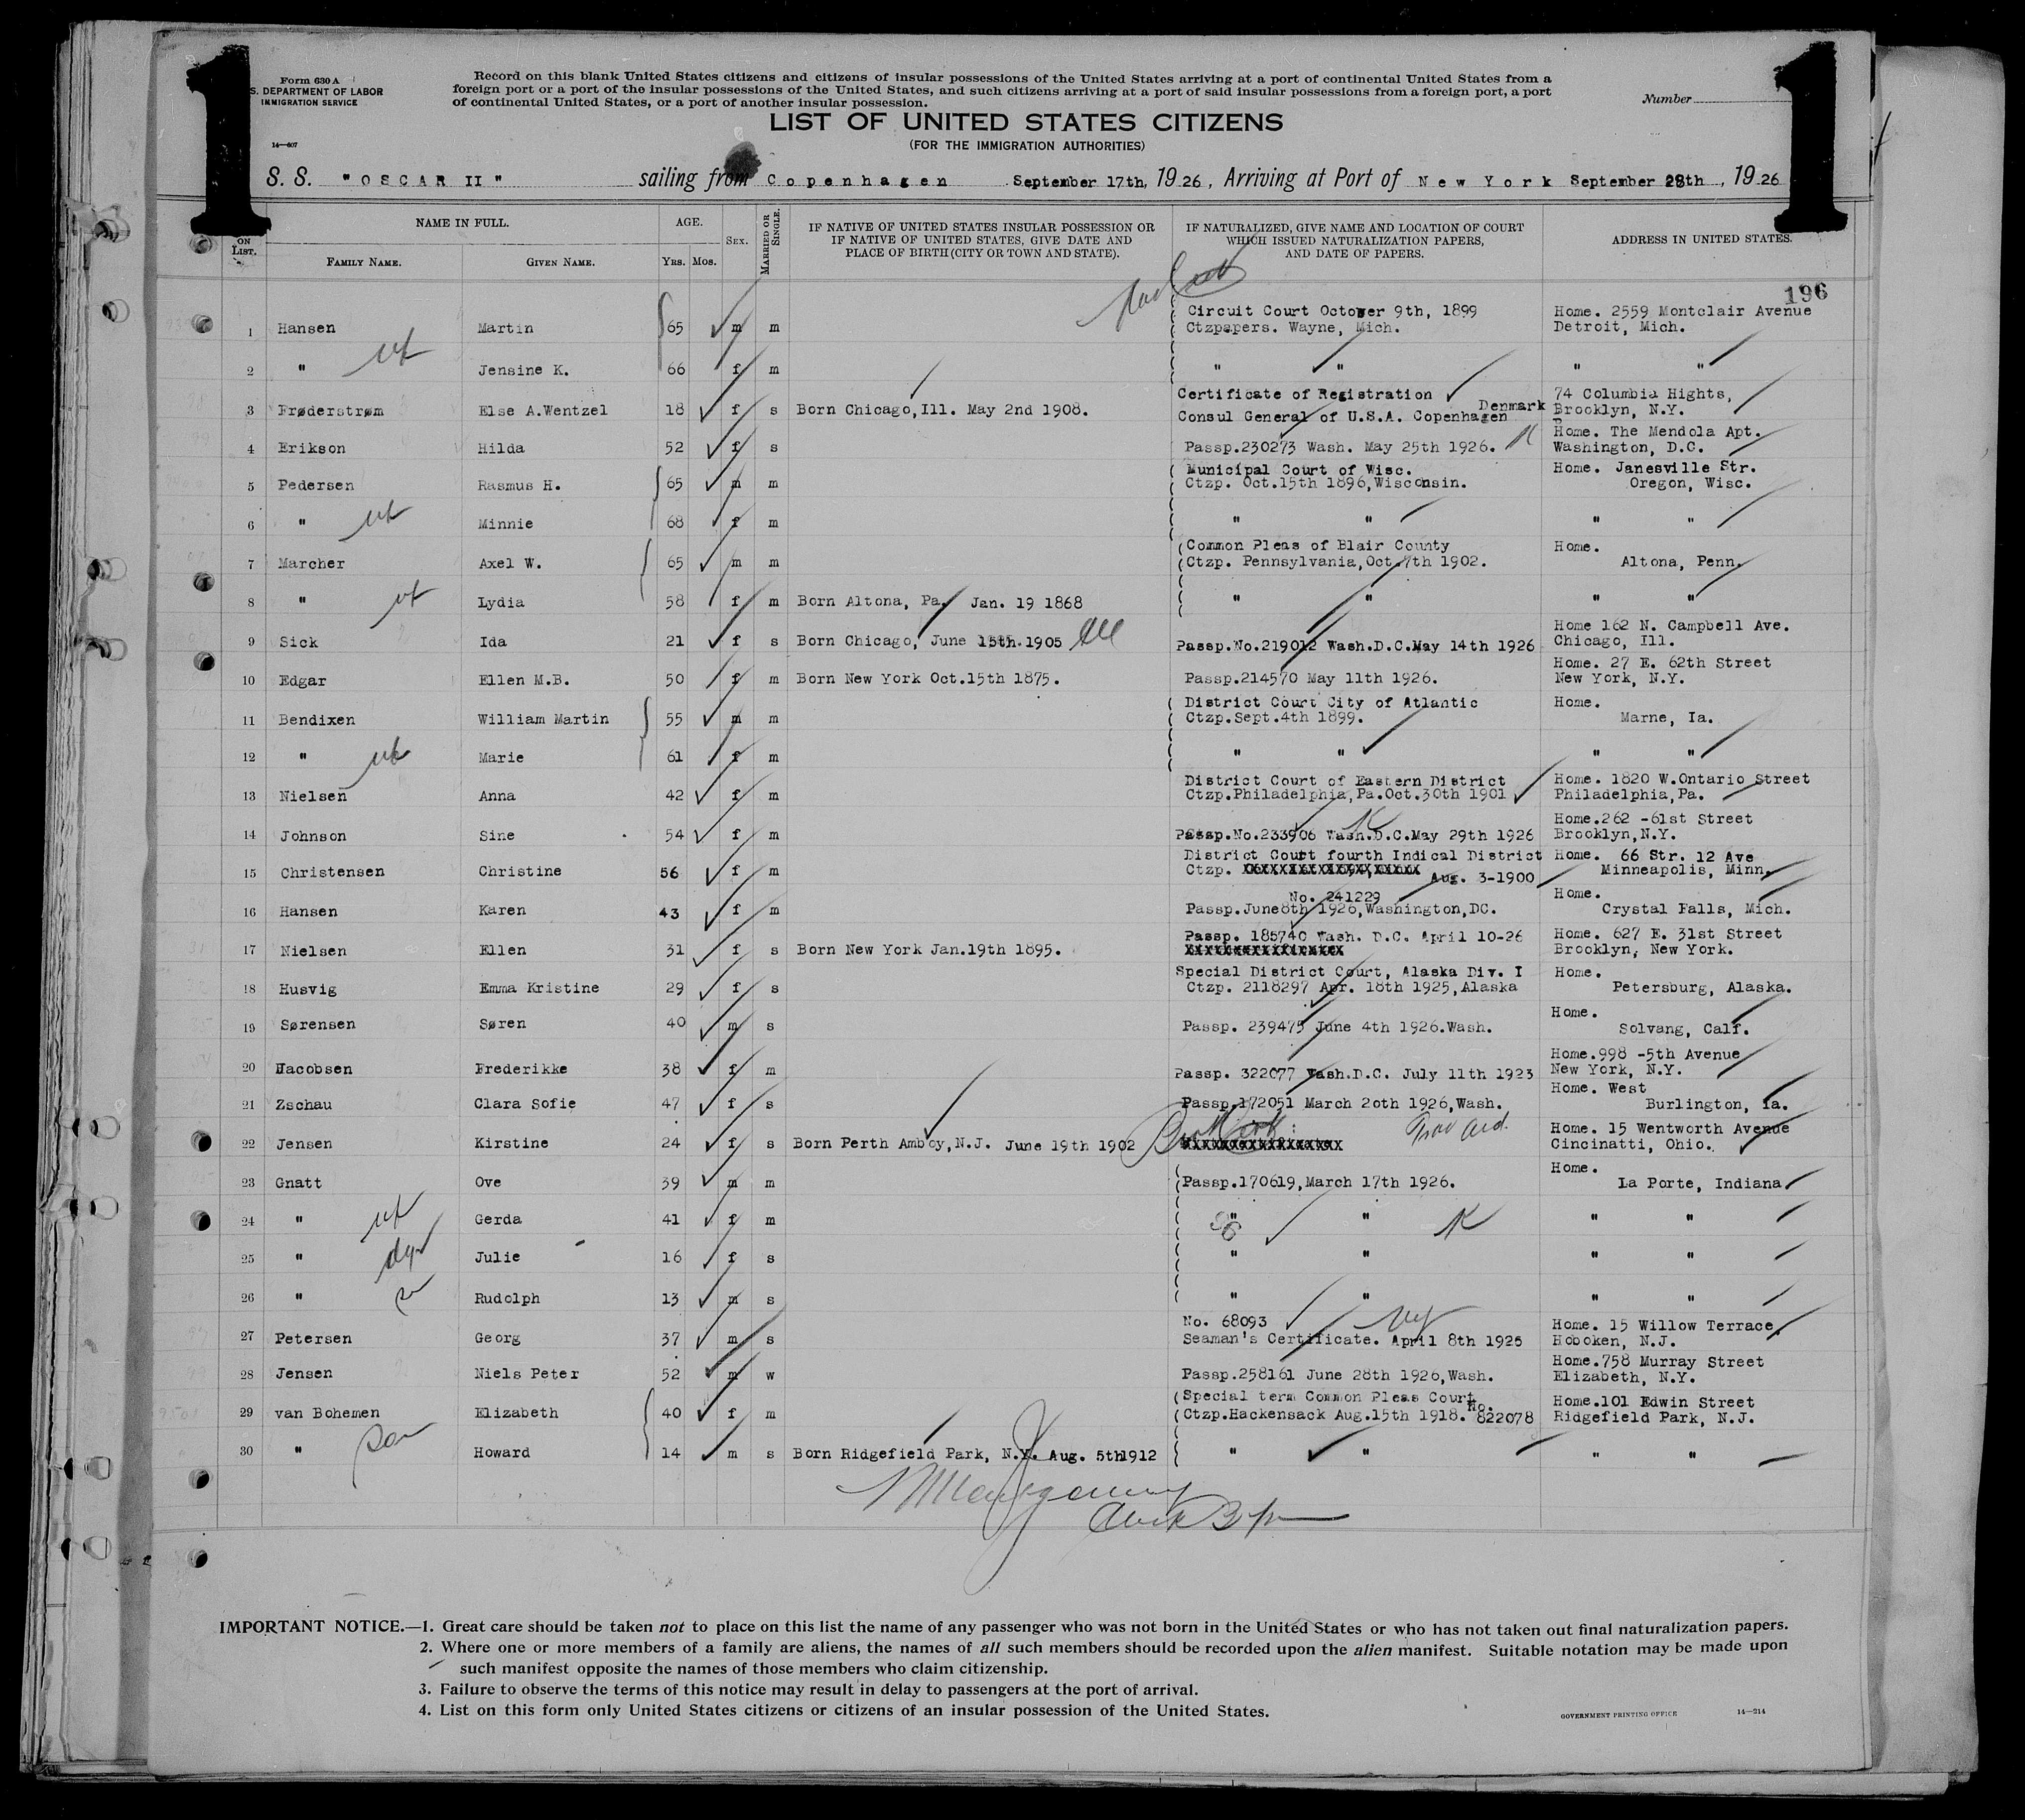 1
1
Form 630 A
S. DEPARTMENT OF LABOR
IMMIGRATION SERVICE
14—607
Record on this blank United States citizens and citizens of insular possessions of the United States arriving at a port of continental United States from a
foreign port or a port of the insular possessions of the United States, and such citizens arriving at a port of said insular possessions from a foreign port, a port
of continental United States, or a port of another insular possession.
Number
LIST OF UNITED STATES CITIZENS
(FOR THE IMMIGRATION AUTHORITIES)
S. S. "OSCAR II" sailing from Copenhagen September 17th, 1926, Arriving at Port of New York September 28th, 1926
ON LIST.
NAME IN FULL.
FAMILY NAME.
GIVEN NAME.
AGE.
Yrs. Mos.
SEX.
MARRIED OR SINGLE.
IF NATIVE OF UNITED STATES INSULAR POSSESSION OR
IF NATIVE OF UNITED STATES, GIVE DATE AND
PLACE OF BIRTH (CITY OR TOWN AND STATE).
IF NATURALIZED, GIVE NAME AND LOCATION OF COURT
WHICH ISSUED NATURALIZATION PAPERS,
AND DATE OF PAPERS.
ADDRESS IN UNITED STATES.
196
Circuit Court October 9th, 1899 Home. 2559 Montclair Avenue
1 Hansen Martin 65 m m Ctzpapers. Wayne, Mich. Detroit, Mich.
wf
2 " Jensine K. 66 f m " " " "
Certificate of Registration 74 Columbia Hights,
3 Frøderstrøm Else A.Wentzel 18 f s Born Chicago,Ill. May 2nd 1908. Consul General of U.S.A. Copenhagen Denmark Brooklyn, N.Y.
Home. The Mendola Apt.
4 Erikson Hilda 52 f s Passp.230273 Wash. May 25th 1926. Washington, D.C.
Municipal Court of Wisc. Home. Janesville Str.
5 Pedersen Rasmus H. 65 m m Ctzp. Oct.15th 1896,Wisconsin. Oregon, Wisc.
6 " wf Minnie 68 f m " " " "
Common Pleas of Blair County Home.
7 Marcher Axel W. 65 m m Ctzp. Pennsylvania,Oct.7th 1902. Altona, Penn.
8 " wf Lydia 58 f m Born Altona, Pa. Jan. 19 1868 " " " "
Home 162 N. Campbell Ave.
9 Sick Ida 21 f s Born Chicago, June 15th.1905 Passp.No.219012 Wash.D.C.May 14th 1926 Chicago, Ill.
Home. 27 E. 62th Street
10 Edgar Ellen M.B. 50 f m Born New York Oct.15th 1875. Passp.214570 May 11th 1926. New York, N.Y.
District Court City of Atlantic Home.
11 Bendixen William Martin 55 m m Ctzp.Sept.4th 1899. Marne, Ia.
12 " wf Marie 61 f m " " " "
District Court of Eastern District Home. 1820 W.Ontario Street
13 Nielsen Anna 42 f m Ctzp.Philadelphia,Pa.Oct.30th 1901 Philadelphia,Pa.
Home.262 -61st Street
14 Johnson Sine 54 f m Passp.No.233906 Wash.D.C.May 29th 1926 Brooklyn,N.Y.
District Court fourth Indical District Home. 66 Str. 12 Ave
15 Christensen Christine 56 f m Ctzp. Aug. 3-1900 Minneapolis, Minn.
No. 241229 Home.
16 Hansen Karen 43 f m Passp.June8th 1926,Washington,DC. Crystal Falls, Mich.
Passp. 185740 Wash. D.C. April 10-26 Home. 627 E. 31st Street
17 Nielsen Ellen 31 f s Born New York Jan.19th 1895. Brooklyn, New York.
Special District Court, Alaska Div. I Home.
18 Husvig Emma Kristine 29 f s Ctzp. 2118297 Apr. 18th 1925,Alaska Petersburg, Alaska.
Home.
19 Sørensen Søren 40 m s Passp. 239475 June 4th 1926.Wash. Solvang, Calf.
Home.998 -5th Avenue
20 Jacobsen Frederikke 38 f m Passp. 322077 Wash.D.C. July 11th 1923 New York, N.Y.
Home. West
21 Zschau Clara Sofie 47 f s Passp.172051 March 20th 1926,Wash. Burlington, Ia.
Home. 15 Wentworth Avenue
22 Jensen Kirstine 24 f s Born Perth Amboy,N.J. June 19th 1902 Cincinatti, Ohio.
Home.
23 Gnatt Ove 39 m m Passp.170619,March 17th 1926. La Porte, Indiana
24 " wf Gerda 41 f m " " " "
25 " Julie 16 f s " " " "
26 " Rudolph 13 m s " " " "
No. 68093 Home. 15 Willow Terrace,
27 Petersen Georg 37 m s Seaman's Certificate. April 8th 1925 Hoboken, N.J.
Home.758 Murray Street
28 Jensen Niels Peter 52 m w Passp.258161 June 28th 1926,Wash. Elizabeth, N.Y.
Special term Common Pleas Court Home.101 Edwin Street
29 van Bohemen Elizabeth 40 f m Ctzp.Hackensack Aug.15th 1918. No. 822078 Ridgefield Park, N.J.
30 " son Howard 14 m s Born Ridgefield Park, N.Y. Aug. 5th1912 " " " "
IMPORTANT NOTICE.—1. Great care should be taken not to place on this list the name of any passenger who was not born in the United States or who has not taken out final naturalization papers.
2. Where one or more members of a family are aliens, the names of all such members should be recorded upon the alien manifest. Suitable notation may be made upon
such manifest opposite the names of those members who claim citizenship.
3. Failure to observe the terms of this notice may result in delay to passengers at the port of arrival.
4. List on this form only United States citizens or citizens of an insular possession of the United States.
GOVERNMENT PRINTING OFFICE 14—214